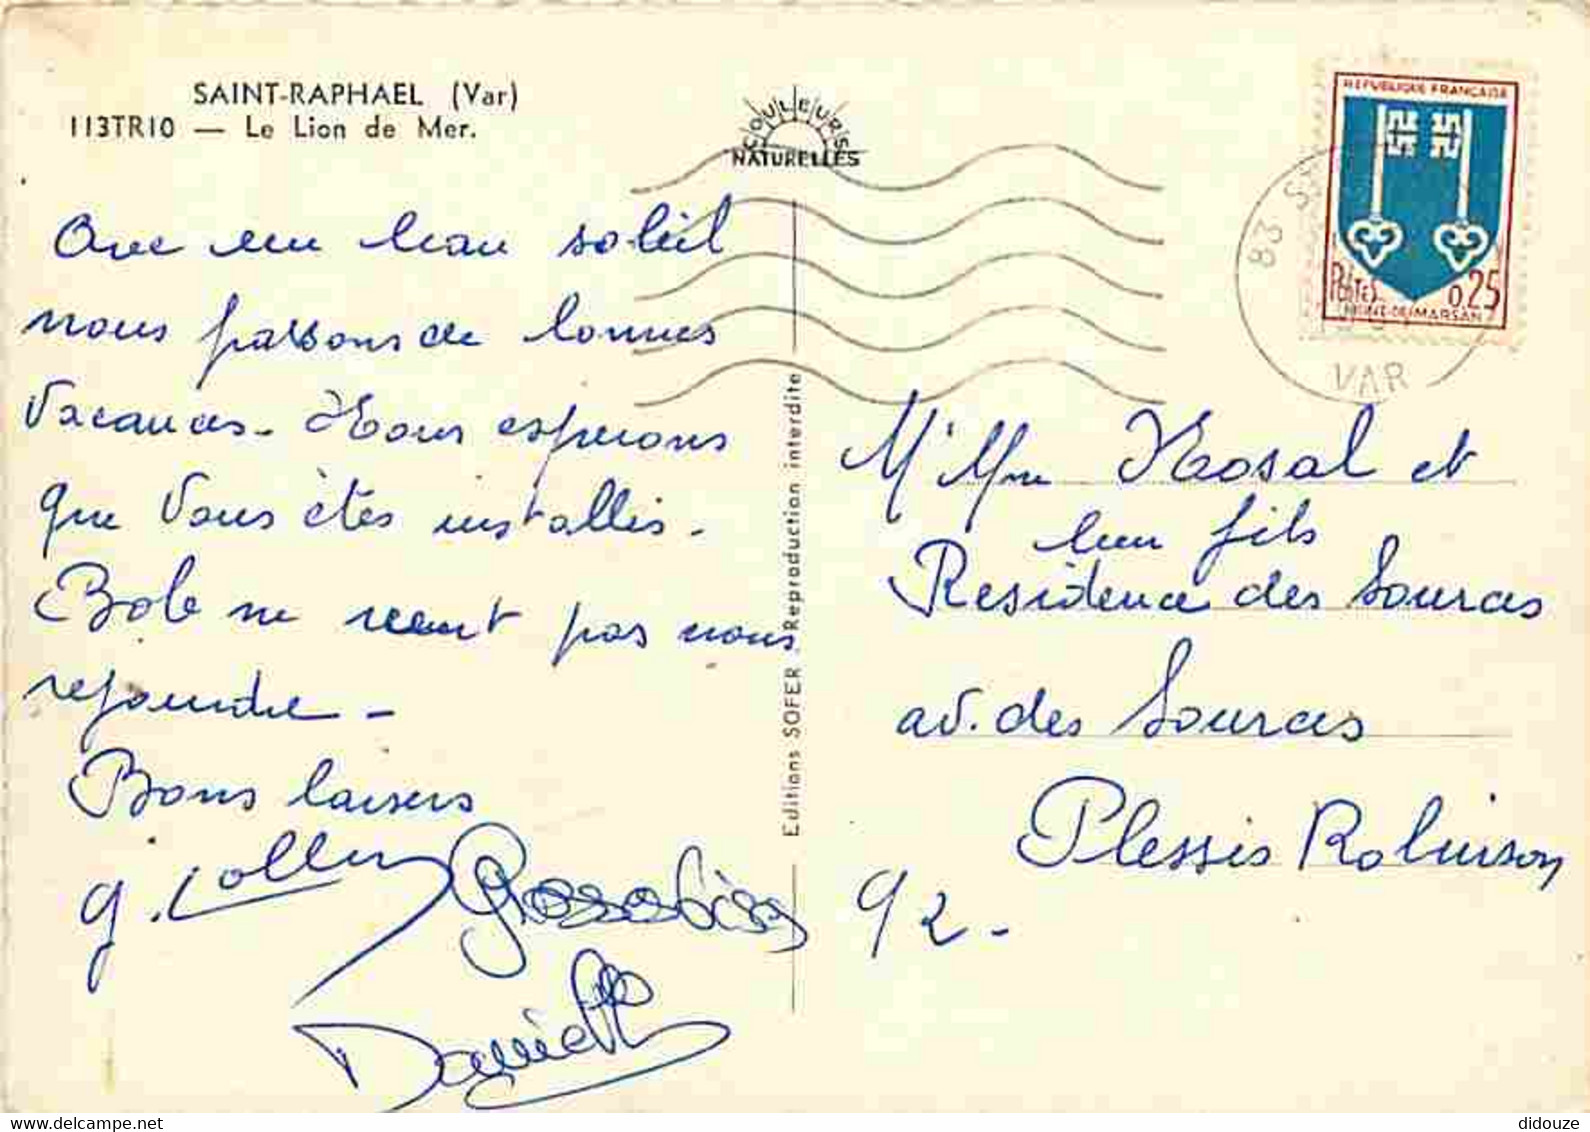 SAINT-RAPHAEL (Var)
113TR10 — Le Lion de Mer.
COULEURS
NATURELLES
REPUBLIQUE FRANÇAISE
POSTES
0,25
MONT-DE-MARSAN
83 S
VAR
Avec un beau soleil
nous passons de bonnes
Vacances - Nous esperons
que Vous êtes installés -
Bob ne veut pas nous
rejoindre -
Bons baisers
Danielle
Editions SOFER - Reproduction interdite
M' Mme Nosal et
leur fils
Residence des Sources
av. des Sources
Plessis Robinson
92 -
delcampe.net
didouze